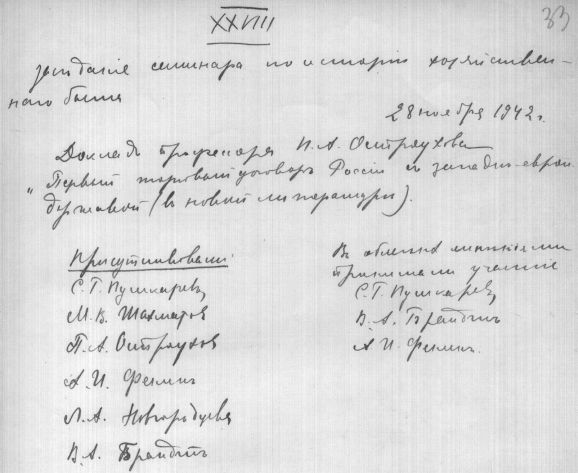 33
XXVIII
заседание семинара по истории хозяйствен-
наго быта
28 ноября 1942 г.
Доклад профессора П.А. Остроухова
„Первый торговый договор России с западно-европ.
державой (в новой литературе).
Присутствовали:
С.Г. Пушкарев,
М.В. Шахматов
П.А. Остроухов
А.И. Фенин
Л.А. Новгородцева
В.А. Брандт
В обмене мнениями
принимали участие
С.Г. Пушкарев,
В.А. Брандт
А.И. Фенин.